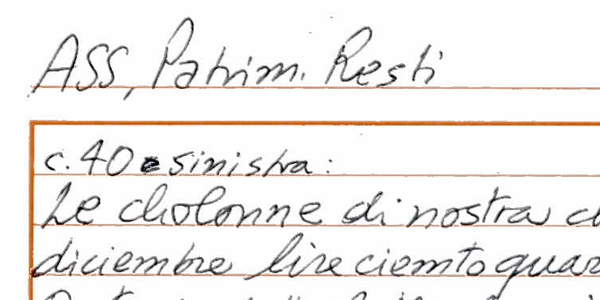 ASS, Patrim. Resti
c. 40 sinistra:
Le cholonne di nostra
diciembre lire ciemto quar